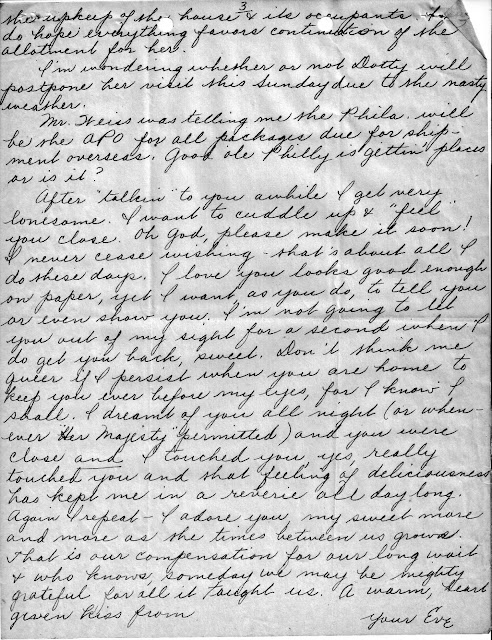 3
the upkeep of the house & its occupants. I
do hope everything favors continuation of the
allotment for her.
I'm wondering whether or not Dotty will
postpone her visit this Sunday due to the nasty
weather.
Mr. Weiss was telling me the Phila. will
be the APO for all packages due for ship-
ment overseas. Good ole Philly is gettin' places
or is it?
After "talkin" to you awhile I get very
lonesome. I want to cuddle up & "feel"
you close. Oh God, please make it soon!
I never cease wishing - that's about all I
do these days. I love you looks good enough
on paper, yet I want, as you do, to tell you
or even show you. I'm not going to let
you out of my sight for a second when I
do get you back, sweet. Don't think me
queer if I persist when you are home to
keep you ever before my eyes, for I know I
shall. I dreamt of you all night (or when-
ever "Her Majesty" permitted) and you were
close and I touched you yes, really
touched you and that feeling of deliciousness
has kept me in a reverie all day long.
Again I repeat - I adore you, my sweet more
and more as the times between us grows.
That is our compensation for our long wait
& who knows, someday we may be mighty
grateful for all it taught us. A warm, heart
given kiss from
Your Eve